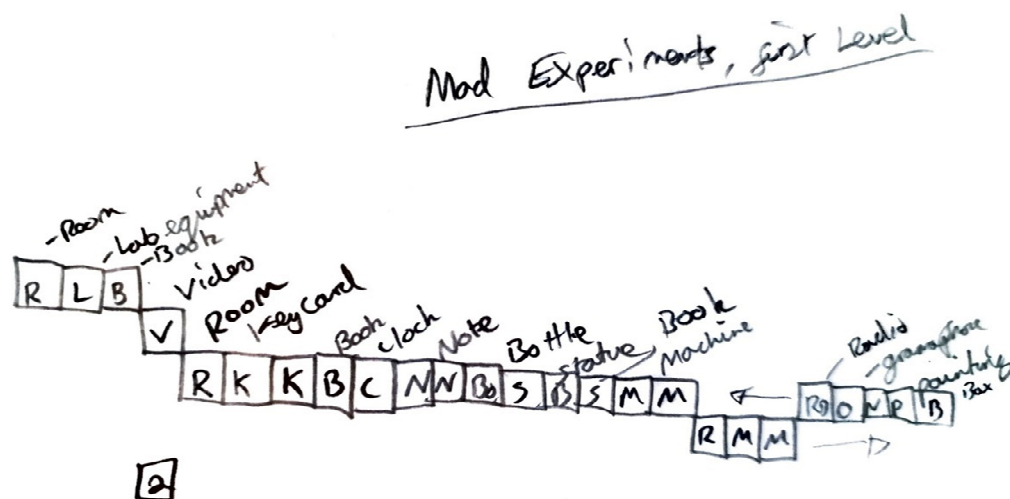 Mad Experiments, first Level
- Room
- Lab equipment
- Book
Video
Room
Key Card
Book
Clock
Note
Bottle
Statue
Book
Machine
Radio
- gramophone
painting
Box
R L B
V
R K K B C N N Bo S B S M M
R M M
O N P B
2